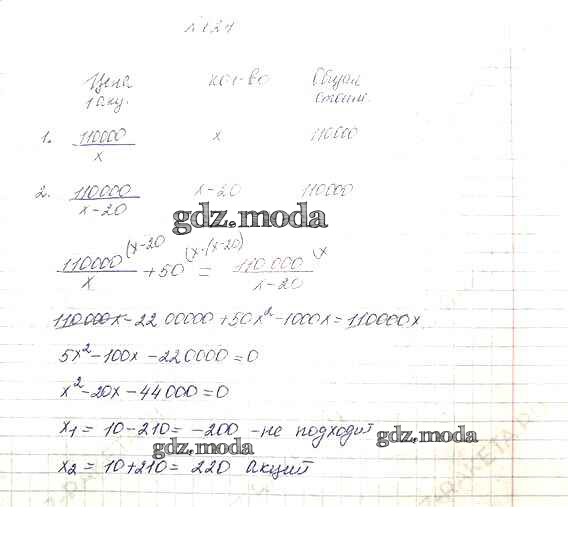 Цена кол-во Общая
1 акц. стоим.
1. 110000/x x 110000
2. 110000/x-20 x-20 110000
gdz.moda
110000/x (x-20 +50 (x·(x-20) = 110 000/x-20 (x
110000x-2200000+50x²-1000x=110000x
5x²-100x-220000=0
x²-20x-44000=0
x₁= 10-210= -200 -не подходит
gdz.moda
gdz.moda
x₂= 10+210= 220 акций